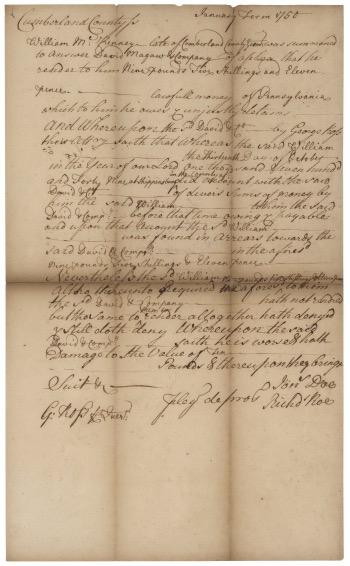 Cumberland County ss January Term 1750
William Mc Kenney late of Cumberland County was summoned
to answer David Magaw & Company of a plea that he
render to him Nine pounds five Shillings and Eleven
pence lawfull money of Pennsylvania
which to him he owes & unjustly detains
And Whereupon the sd David & Co by George Ross
their Atty saith that Whereas the said William
in the Year of our Lord One thousand Seven hundred
and forty Nine at Shippensburg
David & Co of divers Sums of money by
him the said William to him the said
David & Comp before that time owing & payable
and upon that Account the sd William
was found in Arrears towards the
said David & Comp in the afores
Nine pounds five Shillings & Eleven pence
Nevertheless the sd William
altho thereunto required the afores to him
the sd David & Company hath not rendred
but the same to render altogether hath denyed
& still doth deny Whereupon the said
David & Comp saith he is worse & hath
Damage to the value of
Pounds & thereupon they brings
Suit &c
G: Ross pledges de pros Jon Doe
Richd Roe